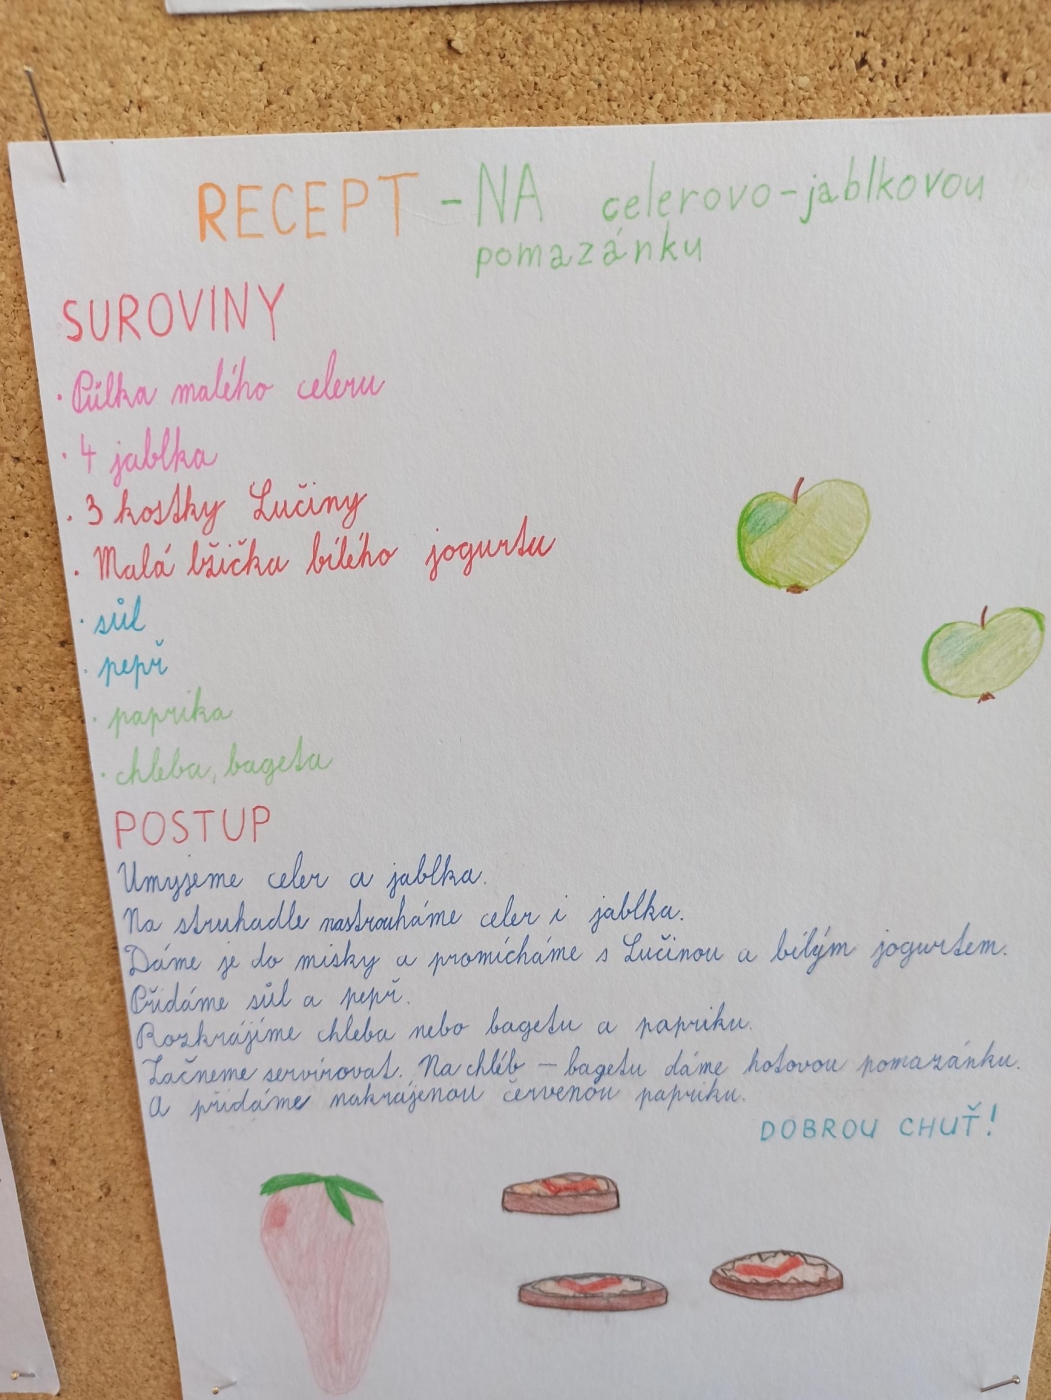 RECEPT - NA celerovo-jablkovou
pomazánku
SUROVINY
· Půlka malého celeru
· 4 jablka
· 3 kostky Lučiny
· Malá lžička bílého jogurtu
· sůl
· pepř
· paprika
· chleba, bageta
POSTUP
Umyjeme celer a jablka.
Na struhadle nastrouháme celer i jablka.
Dáme je do misky a promícháme s Lučinou a bílým jogurtem.
Přidáme sůl a pepř.
Rozkrájíme chleba nebo bagetu a papriku.
Začneme servírovat. Na chléb – bagetu dáme hotovou pomazánku.
A přidáme nakrájenou červenou papriku.
DOBROU CHUŤ!